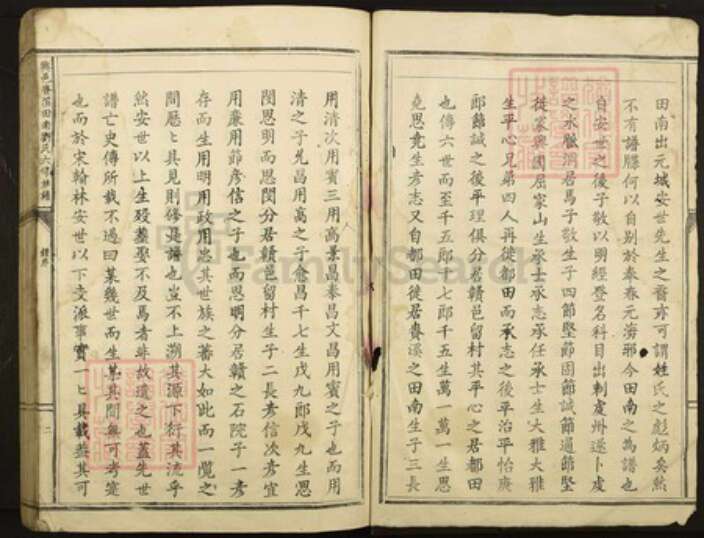 田南出元城安世先生之裔亦可謂姓氏之彪炳矣然
不有譜牒何以自别於秦春元海邪今田南之為譜也
自安世之後子敬以明經登名科目出刺虔州遂卜虔
之水 洞居焉子敬生子四節堅節固節誠節通節堅
徙 興國屈家山生承士承志承任承士生大雅大雅
生平心兄弟四人再徙都田而承志之後平治平怡庚
郎節誠之後平理俱分居贛邑留村其平心之居都田
也傳六世而至千五郎千七郎千五生萬一萬一生思
堯思堯生彥志又自都田徙居貴溪之田南生子三長
用清次用賓三用高景昌泰昌文昌用賓之子也而用
清之子兑昌用高之子愈昌千七生戊九郎戊九生思
閔思明而思閔分居贛邑留村生子二長彥信次彥宜
用廉用節彥信之子也而思明分居贛之石院子一彥
存而生用明用政用忠其世族之蕃大如此而一覽之
間歷歷具見則修是譜也豈不上溯其源下衍其流乎
然安世以上生歿墓娶不及焉者非故遺之也蓋先世
譜亡史傳所載不過曰某幾世而生某其間無可考寔
也而於宋翰林安世以下支派事實一一具載無其可
劉氏六修族譜
二
FamilySearch